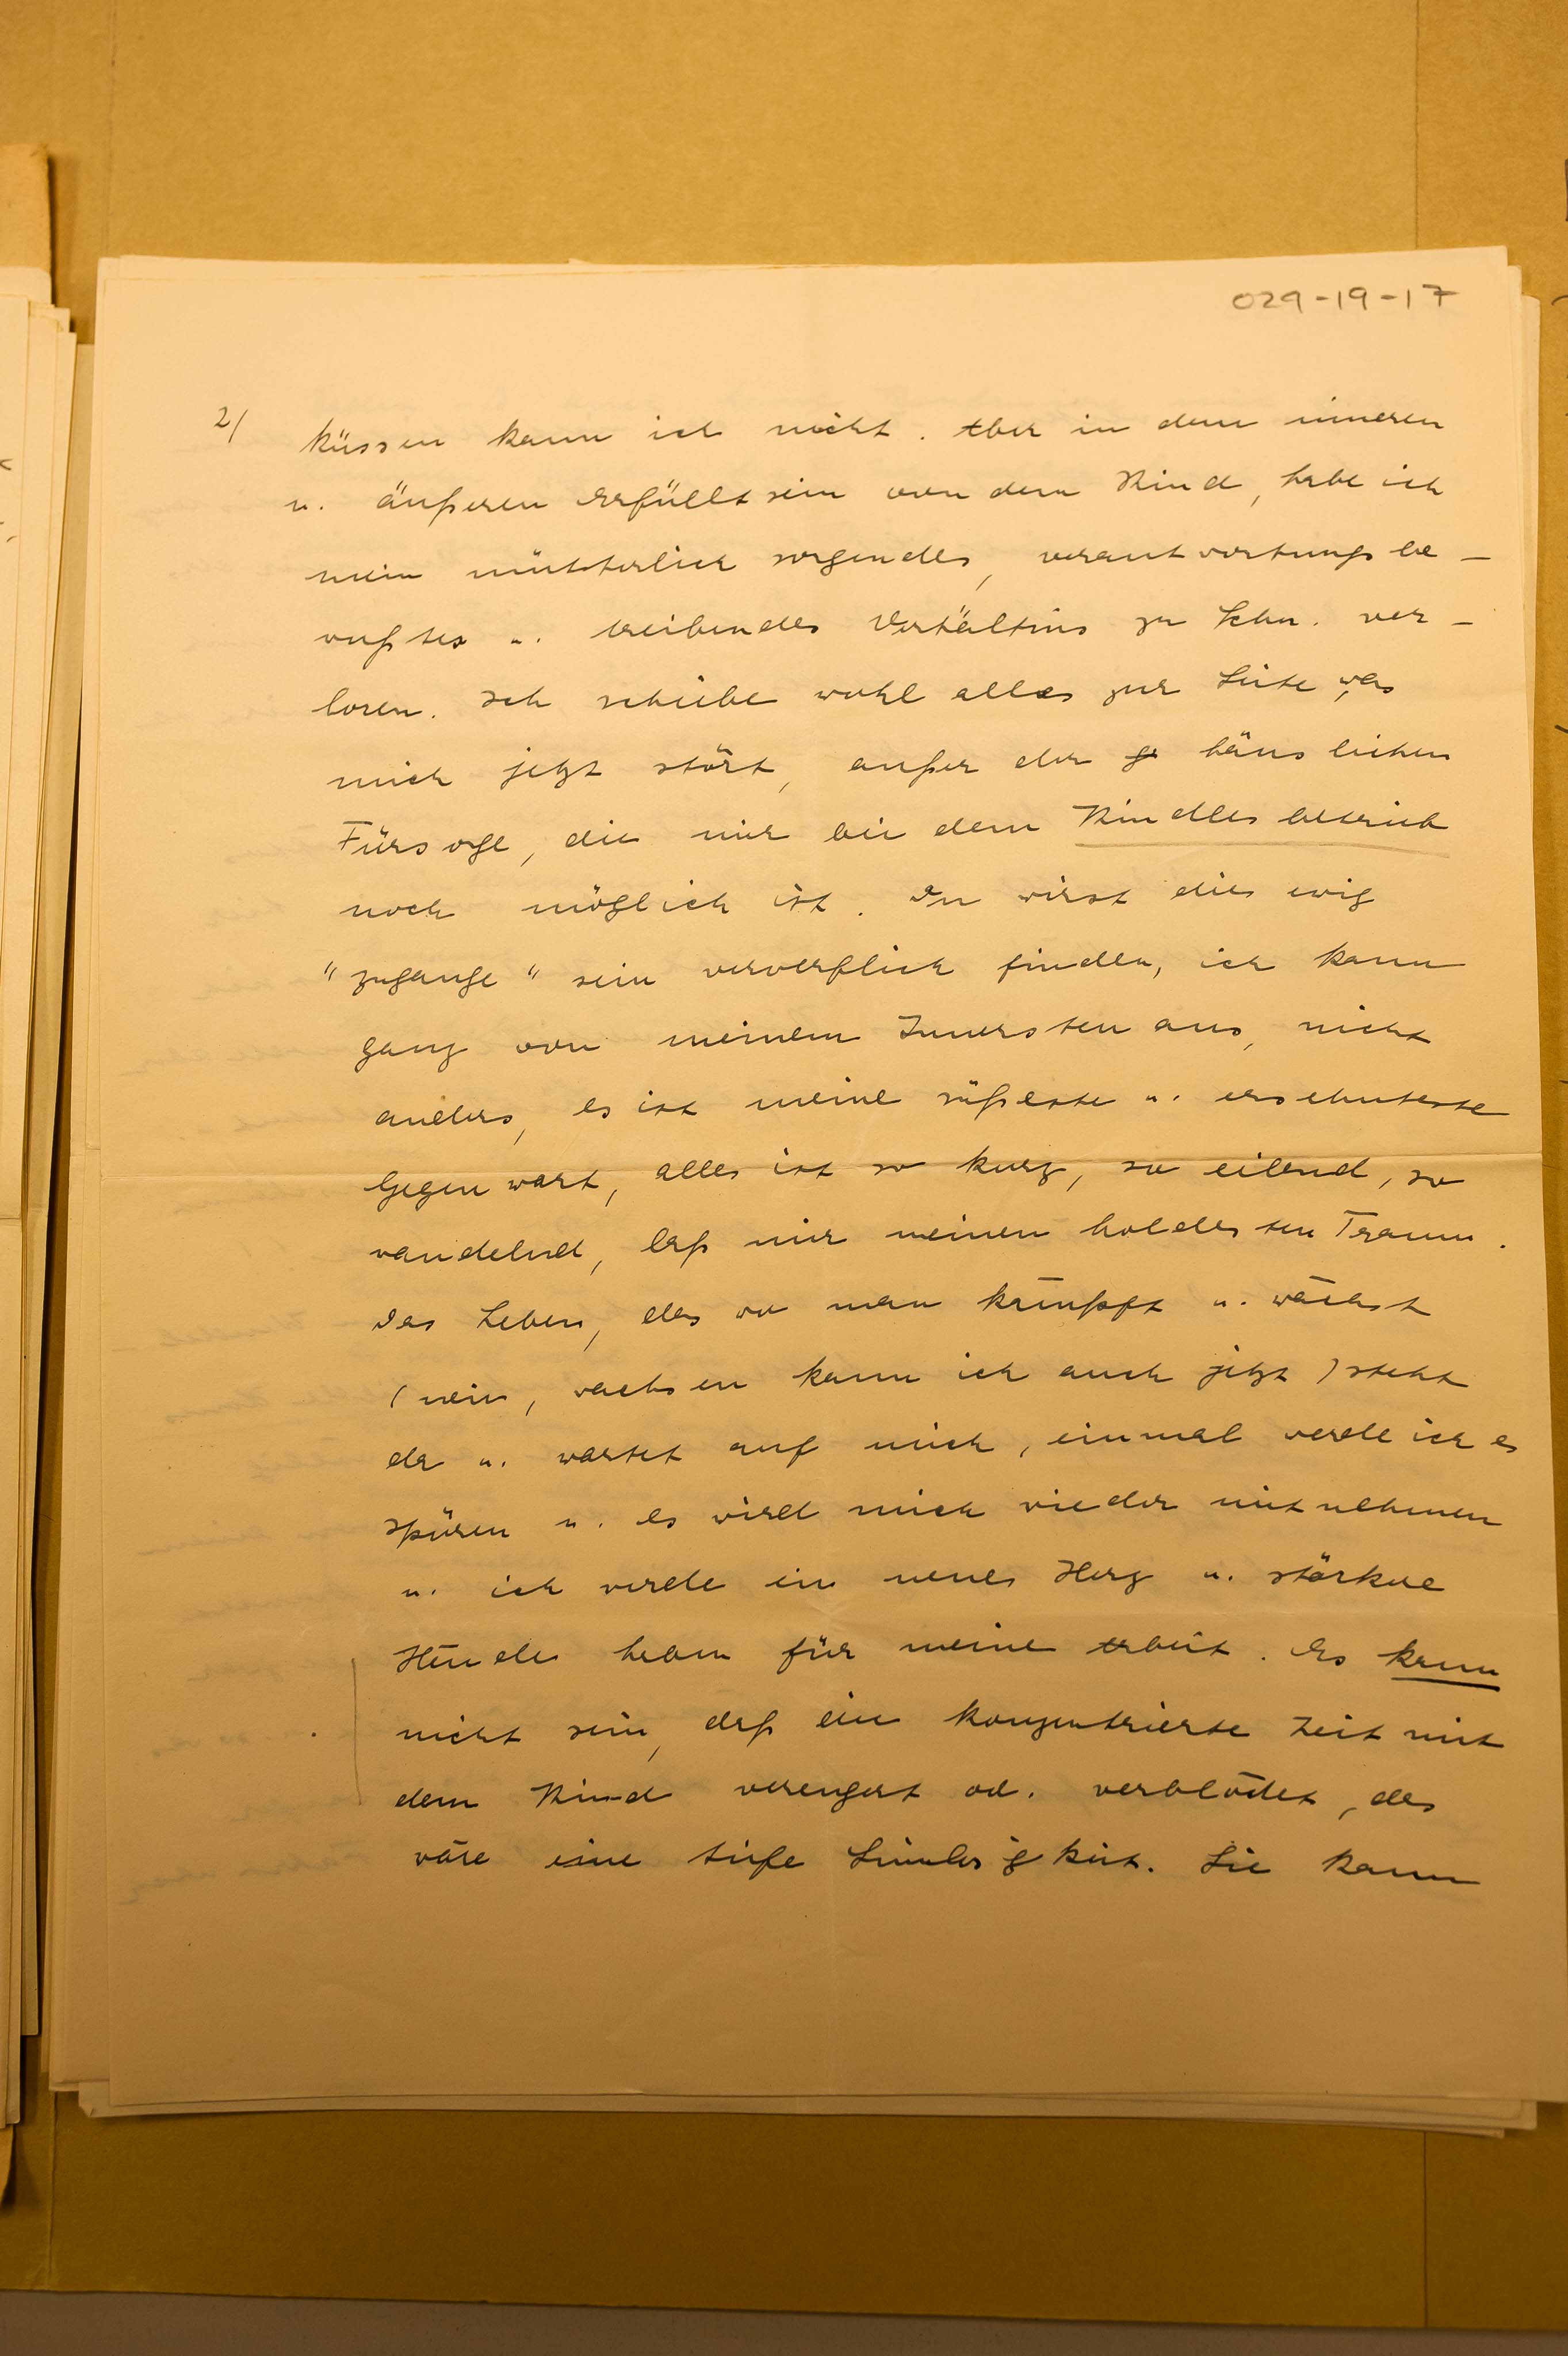 029-19-17
2/ küssen kann ich nicht. Aber in dem inneren
u. äußeren Erfülltsein von dem Kind, habe ich
mein mütterlich sorgendes, verantwortungsbe-
wußtes u. treibendes Verhältnis zu Schn. ver-
loren. Ich schiebe wohl alles zur Seite was
mich jetzt stört, außer der häuslichen
Fürsorge, die mir bei dem Kindlesbetrieb
noch möglich ist. Du wirst dies ewig
"zugange" sein verwerflich finden, ich kann
ganz von meinem Innersten aus, nicht
anders, es ist meine süßeste u. ersehnteste
Gegenwart, alles ist so kurz, so eilend, so
wandelnd, laß mir meinen holdesten Traum.
Das Leben, das wo man kämpft u. wächst
(nein, wachsen kann ich auch jetzt) steht
da u. wartet auf mich, einmal werde ich es
spüren u. es wird mich wieder mitnehmen
u. ich werde ein neues Herz u. stärkere
Hände haben für meine Arbeit. Es kann
nicht sein, daß eine konzentrierte Zeit mit
dem Kind verengert od. verblödet, das
wäre eine tiefe Sinnlosigkeit. Sie kann